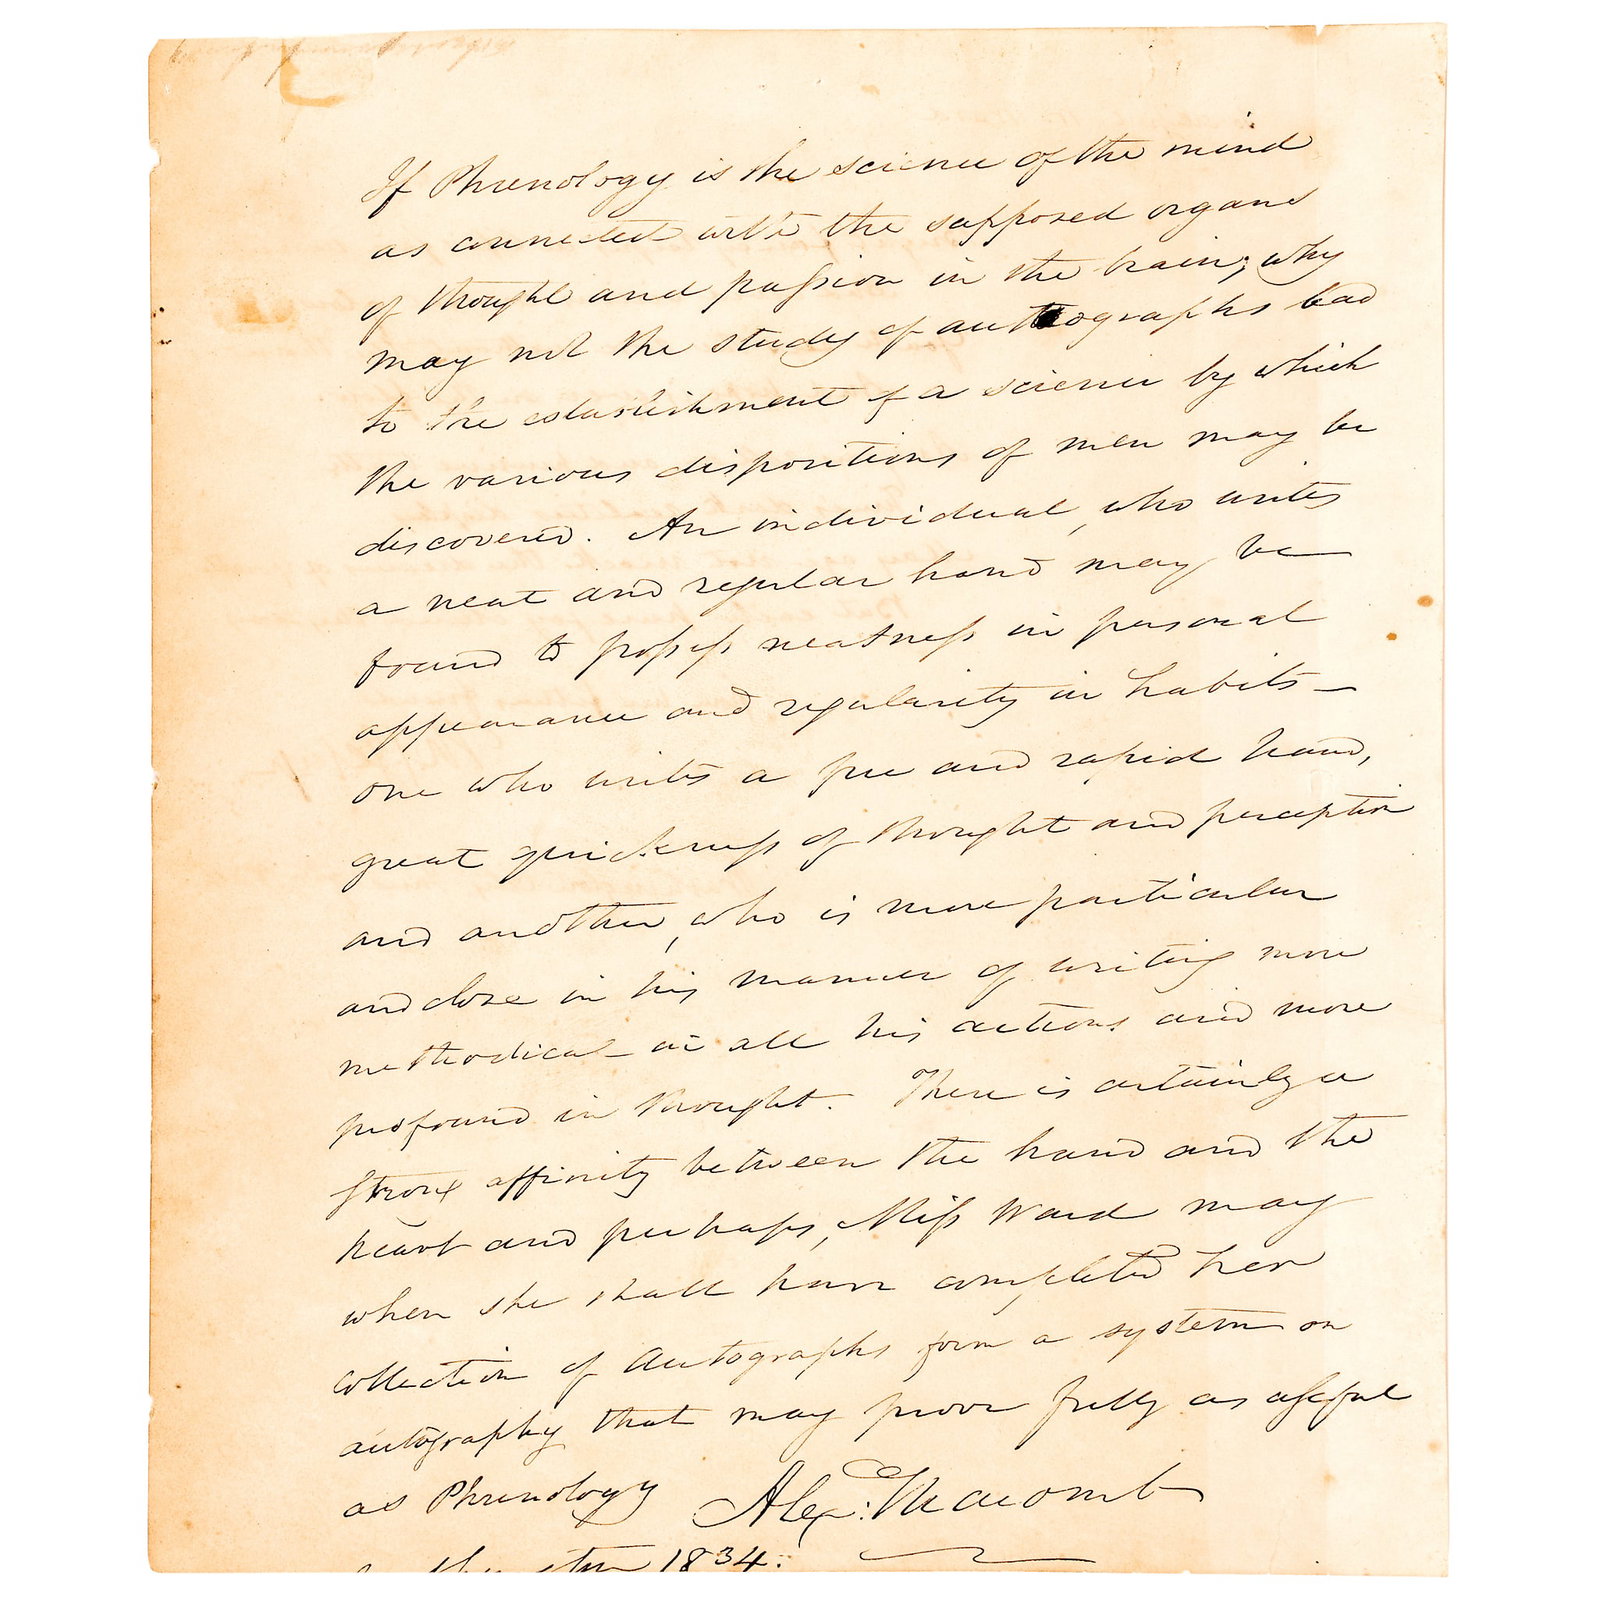 If Phrenology is the science of the mind
as connected with the supposed organs
of thought and passion in the brain; why
may not the study of autographs lead
to the establishment of a science by which
the various dispositions of men may be
discovered. An individual, who writes
a neat and regular hand may be
found to possess neatness in personal
appearance and regularity in habits –
one who writes a free and rapid hand,
great quickness of thought and perception
and another, who is more particular
and close in his manner of writing more
methodical in all his actions and more
profound in thought. There is certainly a
strong affinity between the hand and the
heart and perhaps, Miss Ward may
when she shall have completed her
collection of Autographs form a system on
autography that may prove fully as useful
as Phrenology
Alex: Macomb
1834.